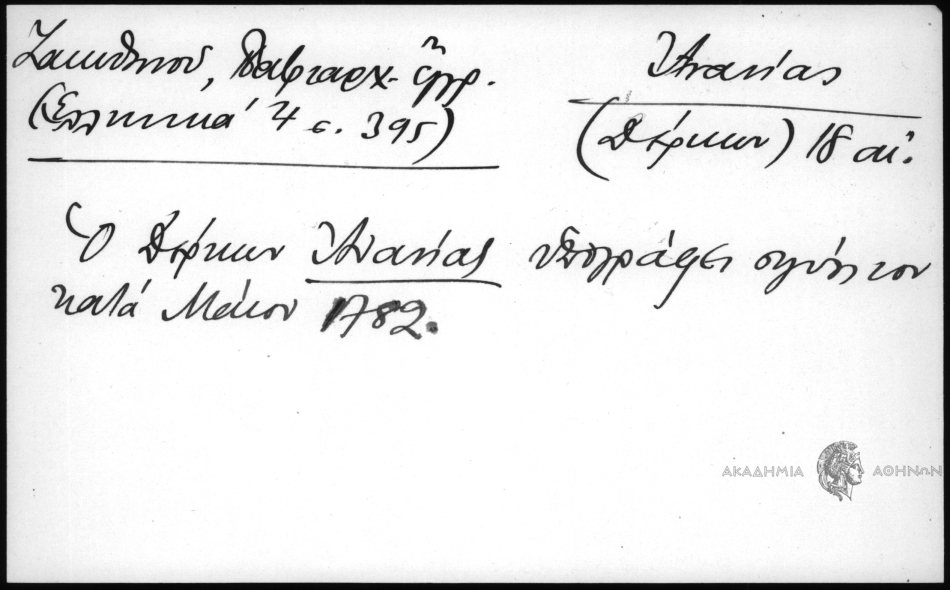 Ζακυθηνοῦ, Πατριαρχ. ἔγγρ.
(Ἑλληνικά 4 σ. 395)
Ἀνανίας
(Δέρκων) 18 αἰ.
Ὁ Δέρκων Ἀνανίας ὑπογράφει σιγίλλιον
κατά Μάιον 1782.
ΑΚΑΔΗΜΙΑ ΑΘΗΝΩΝ